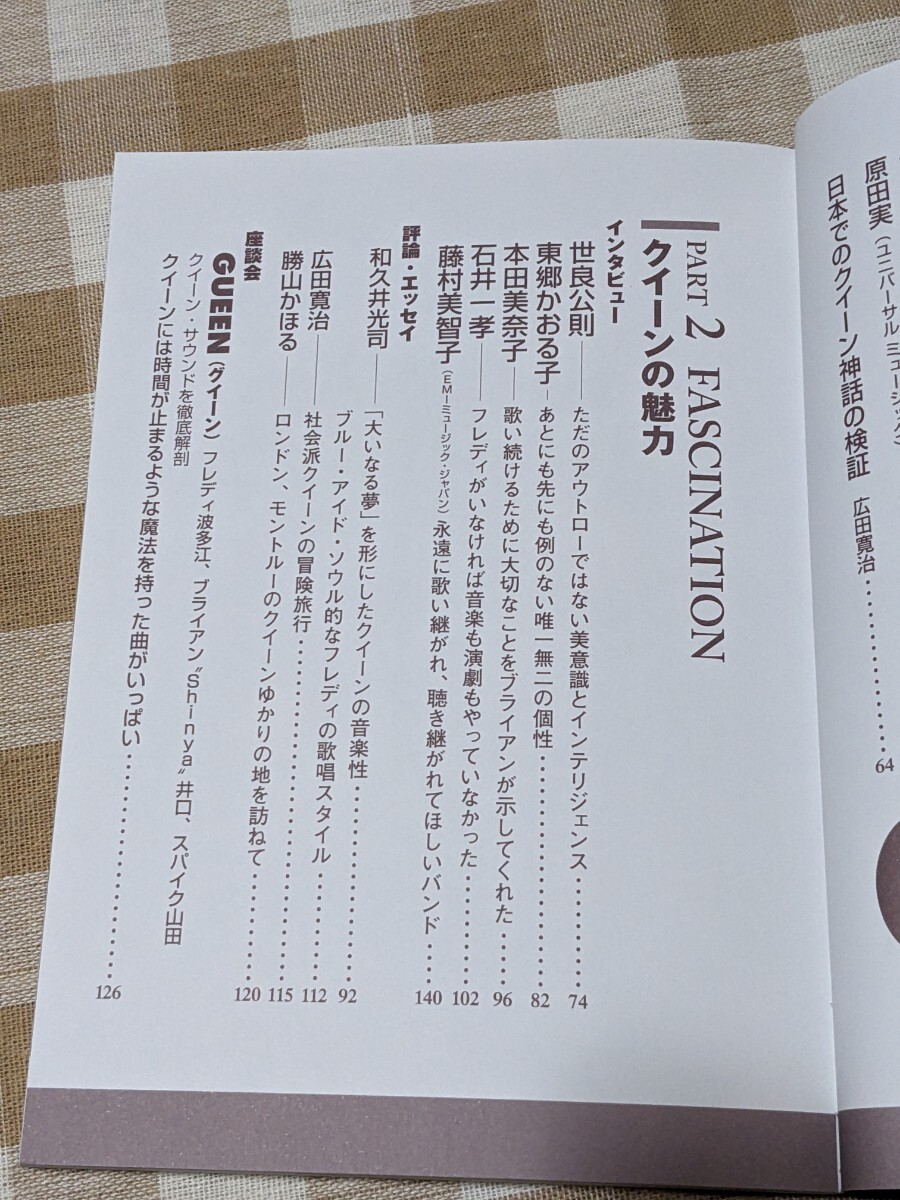 原田実（ユニバーサル ミュージック）
日本でのクイーン神話の検証 広田寛治………………64
PART 2 FASCINATION
クイーンの魅力
インタビュー
世良公則――ただのアウトローではない美意識とインテリジェンス………74
東郷かおる子－あとにも先にも例のない唯一無二の個性………………82
本田美奈子――歌い続けるために大切なことをブライアンが示してくれた……96
石井一孝――フレディがいなければ音楽も演劇もやっていなかった………102
藤村美智子（EMIミュージック・ジャパン）永遠に歌い継がれ、聴き継がれてほしいバンド……140
評論・エッセイ
和久井光司――「大いなる夢」を形にしたクイーンの音楽性………………92
ブルー・アイド・ソウル的なフレディの歌唱スタイル………112
広田寛治――社会派クイーンの冒険旅行………………………115
勝山かほる――ロンドン、モントルーのクイーンゆかりの地を訪ねて………120
座談会
GUEEN（グイーン）フレディ波多江、ブライアン“Shinya”井口、スパイク山田
クイーン・サウンドを徹底解剖
クイーンには時間が止まるような魔法を持った曲がいっぱい………………126